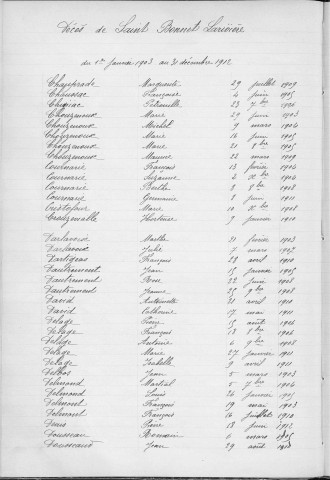 Décès de Saint Bonnet Larivière
du 1er Janvier 1903 au 31 décembre 1912
Chauprade Marguerite 29 juillet 1909
Chaussac Françoise 4 juin 1905
Pétronille 23 7bre 1906
Chouzenoux Marie 29 juin 1903
Chouzenoux Michel 9 mars 1904
Chouzenoux Marie 16 juin 1905
Chouzenoux Marie 21 8bre 1905
Chouzenoux 22 mars 1909
Cournarie François 13 février 1904
Cournarie Suzanne 2 Xbre 1904
Cournarie Berthe 8 8bre 1908
Cournarie Germaine 8 juin 1911
Marie 10 Xbre 1908
Hortense 9 janvier 1910
Darlavoix Marthe 21 février 1903
Darlavoix Julie 7 mars 1907
Dartigeas François 28 avril 1910
Dautrement Jean 15 janvier 1905
Dautrement Rose 22 juin 1908
Dautrement Jeanne 25 9bre 1908
David Antoinette 21 avril 1911
David Catherine 17 mai 1911
Delage Pierre 15 août 1906
Delage François 13 8bre 1906
Delage Antoine 6 9bre 1908
Delage Marie 27 janvier 1911
Delage Isabelle 9 avril 1911
Delbos Jean 5 mars 1903
Delmond Martial 5 7bre 1904
Delmond Louis 26 janvier 1905
Delmont François 19 mai 1903
Delmont François 16 juillet 1910
Denis Pierre 18 juin 1912
Dousseau Romain 6 mars 1905
Dousseaud Jean 29 août